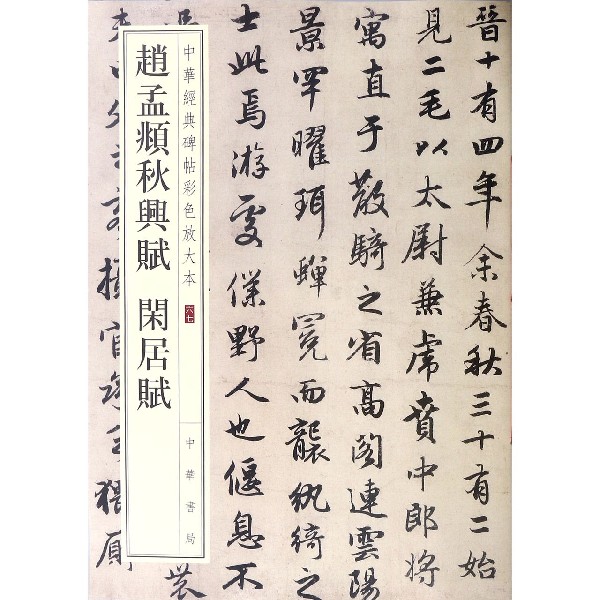 晉十有四年余春秋三十有二始
見二毛以太尉兼虎賁中郎將
寓直于散騎之省高閣連雲陽
景罕曜珥蟬冕而襲紈綺之
士此焉游處僕野人也偃息不
中華經典碑帖彩色放大本 六七
中華書局
趙孟頫秋興賦 閑居賦
攝官承乏猥廁